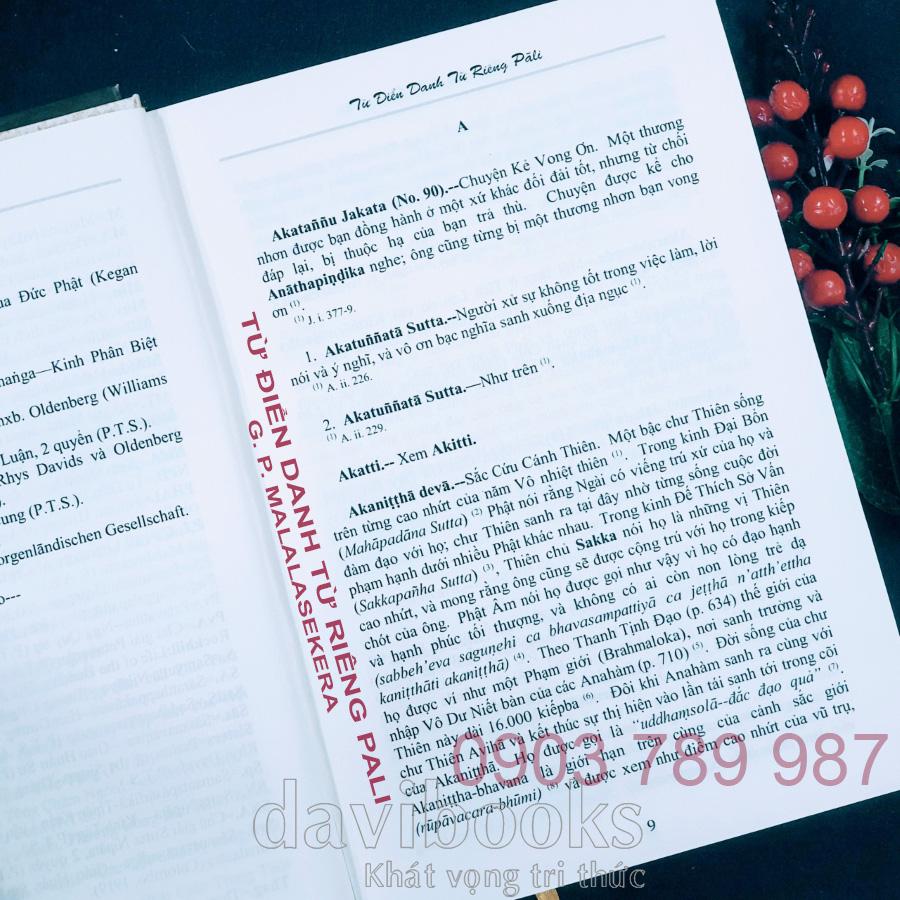 ua Đức Phật (Kegan
naṅga—Kinh Phân Biệt
nxb. Oldenberg (Williams
Luận, 2 quyển (P.T.S.).
Rhys Davids và Oldenberg
rung (P.T.S.).
orgenländischen Gesellschaft.
o---
Từ Điển Danh Từ Riêng Pāli
A
Akataññu Jakata (No. 90).--Chuyện Kẻ Vong Ơn. Một thương
nhơn được bạn đồng hành ở một xứ khác đối đãi tốt, nhưng từ chối
đáp lại, bị thuộc hạ của bạn trả thù. Chuyện được kể cho
Anāthapiṇḍika nghe; ông cũng từng bị một thương nhơn bạn vong
ơn (1).
(1) J. i. 377-9.
1. Akatuññatā Sutta.--Người xử sự không tốt trong việc làm, lời
nói và ý nghĩ, và vô ơn bạc nghĩa sanh xuống địa ngục (1).
(1) A. ii. 226.
2. Akatuññatā Sutta.—Như trên (1).
(1) A. ii. 229.
Akatti.-- Xem Akitti.
Akaniṭṭhā devā.--Sắc Cứu Cánh Thiên. Một bậc chư Thiên sống
trên từng cao nhứt của năm Vô nhiệt thiên (1). Trong kinh Đại Bổn
(Mahāpadāna Sutta) (2) Phật nói rằng Ngài có viếng trú xứ của họ và
đàm đạo với họ; chư Thiên sanh ra tại đây nhờ từng sống cuộc đời
phạm hạnh dưới nhiều Phật khác nhau. Trong kinh Đế Thích Sở Vấn
(Sakkapañha Sutta) (3), Thiên chủ Sakka nói họ là những vị Thiên
cao nhứt, và mong rằng ông cũng sẽ được cộng trú với họ trong kiếp
chót của ông. Phật Âm nói họ được gọi như vậy vì họ có đạo hạnh
và hạnh phúc tối thượng, và không có ai còn non lòng trẻ dạ
(sabbeh'eva saguṇehi ca bhavasampattiyā ca jeṭṭhā n'atth'ettha
kaniṭṭhāti akaniṭṭhā) (4). Theo Thanh Tịnh Đạo (p. 634) thế giới của
họ được ví như một Phạm giới (Brahmaloka), nơi sanh trưởng và
nhập Vô Dư Niết bàn của các Anahàm (p. 710) (5). Đời sống của chư
Thiên này dài 16.000 kiếpba (6). Đôi khi Anahàm sanh ra cùng với
chư Thiên Aviha và kết thúc sự thị hiện vào lần tái sanh tới trong cõi
của Akaniṭṭha. Họ được gọi là “uddhaṃsolā--đắc đạo quả” (7).
Akaniṭṭha-bhavana là giới hạn trên cùng của cảnh sắc giới
(rūpāvacara-bhūmi) (8) và được xem như điểm cao nhứt của vũ trụ,
9
TỪ ĐIỂN DANH TỪ RIÊNG PALI
G. P. MALALASEKERA
0903 789 987
davibooks
Khát vọng tri thức